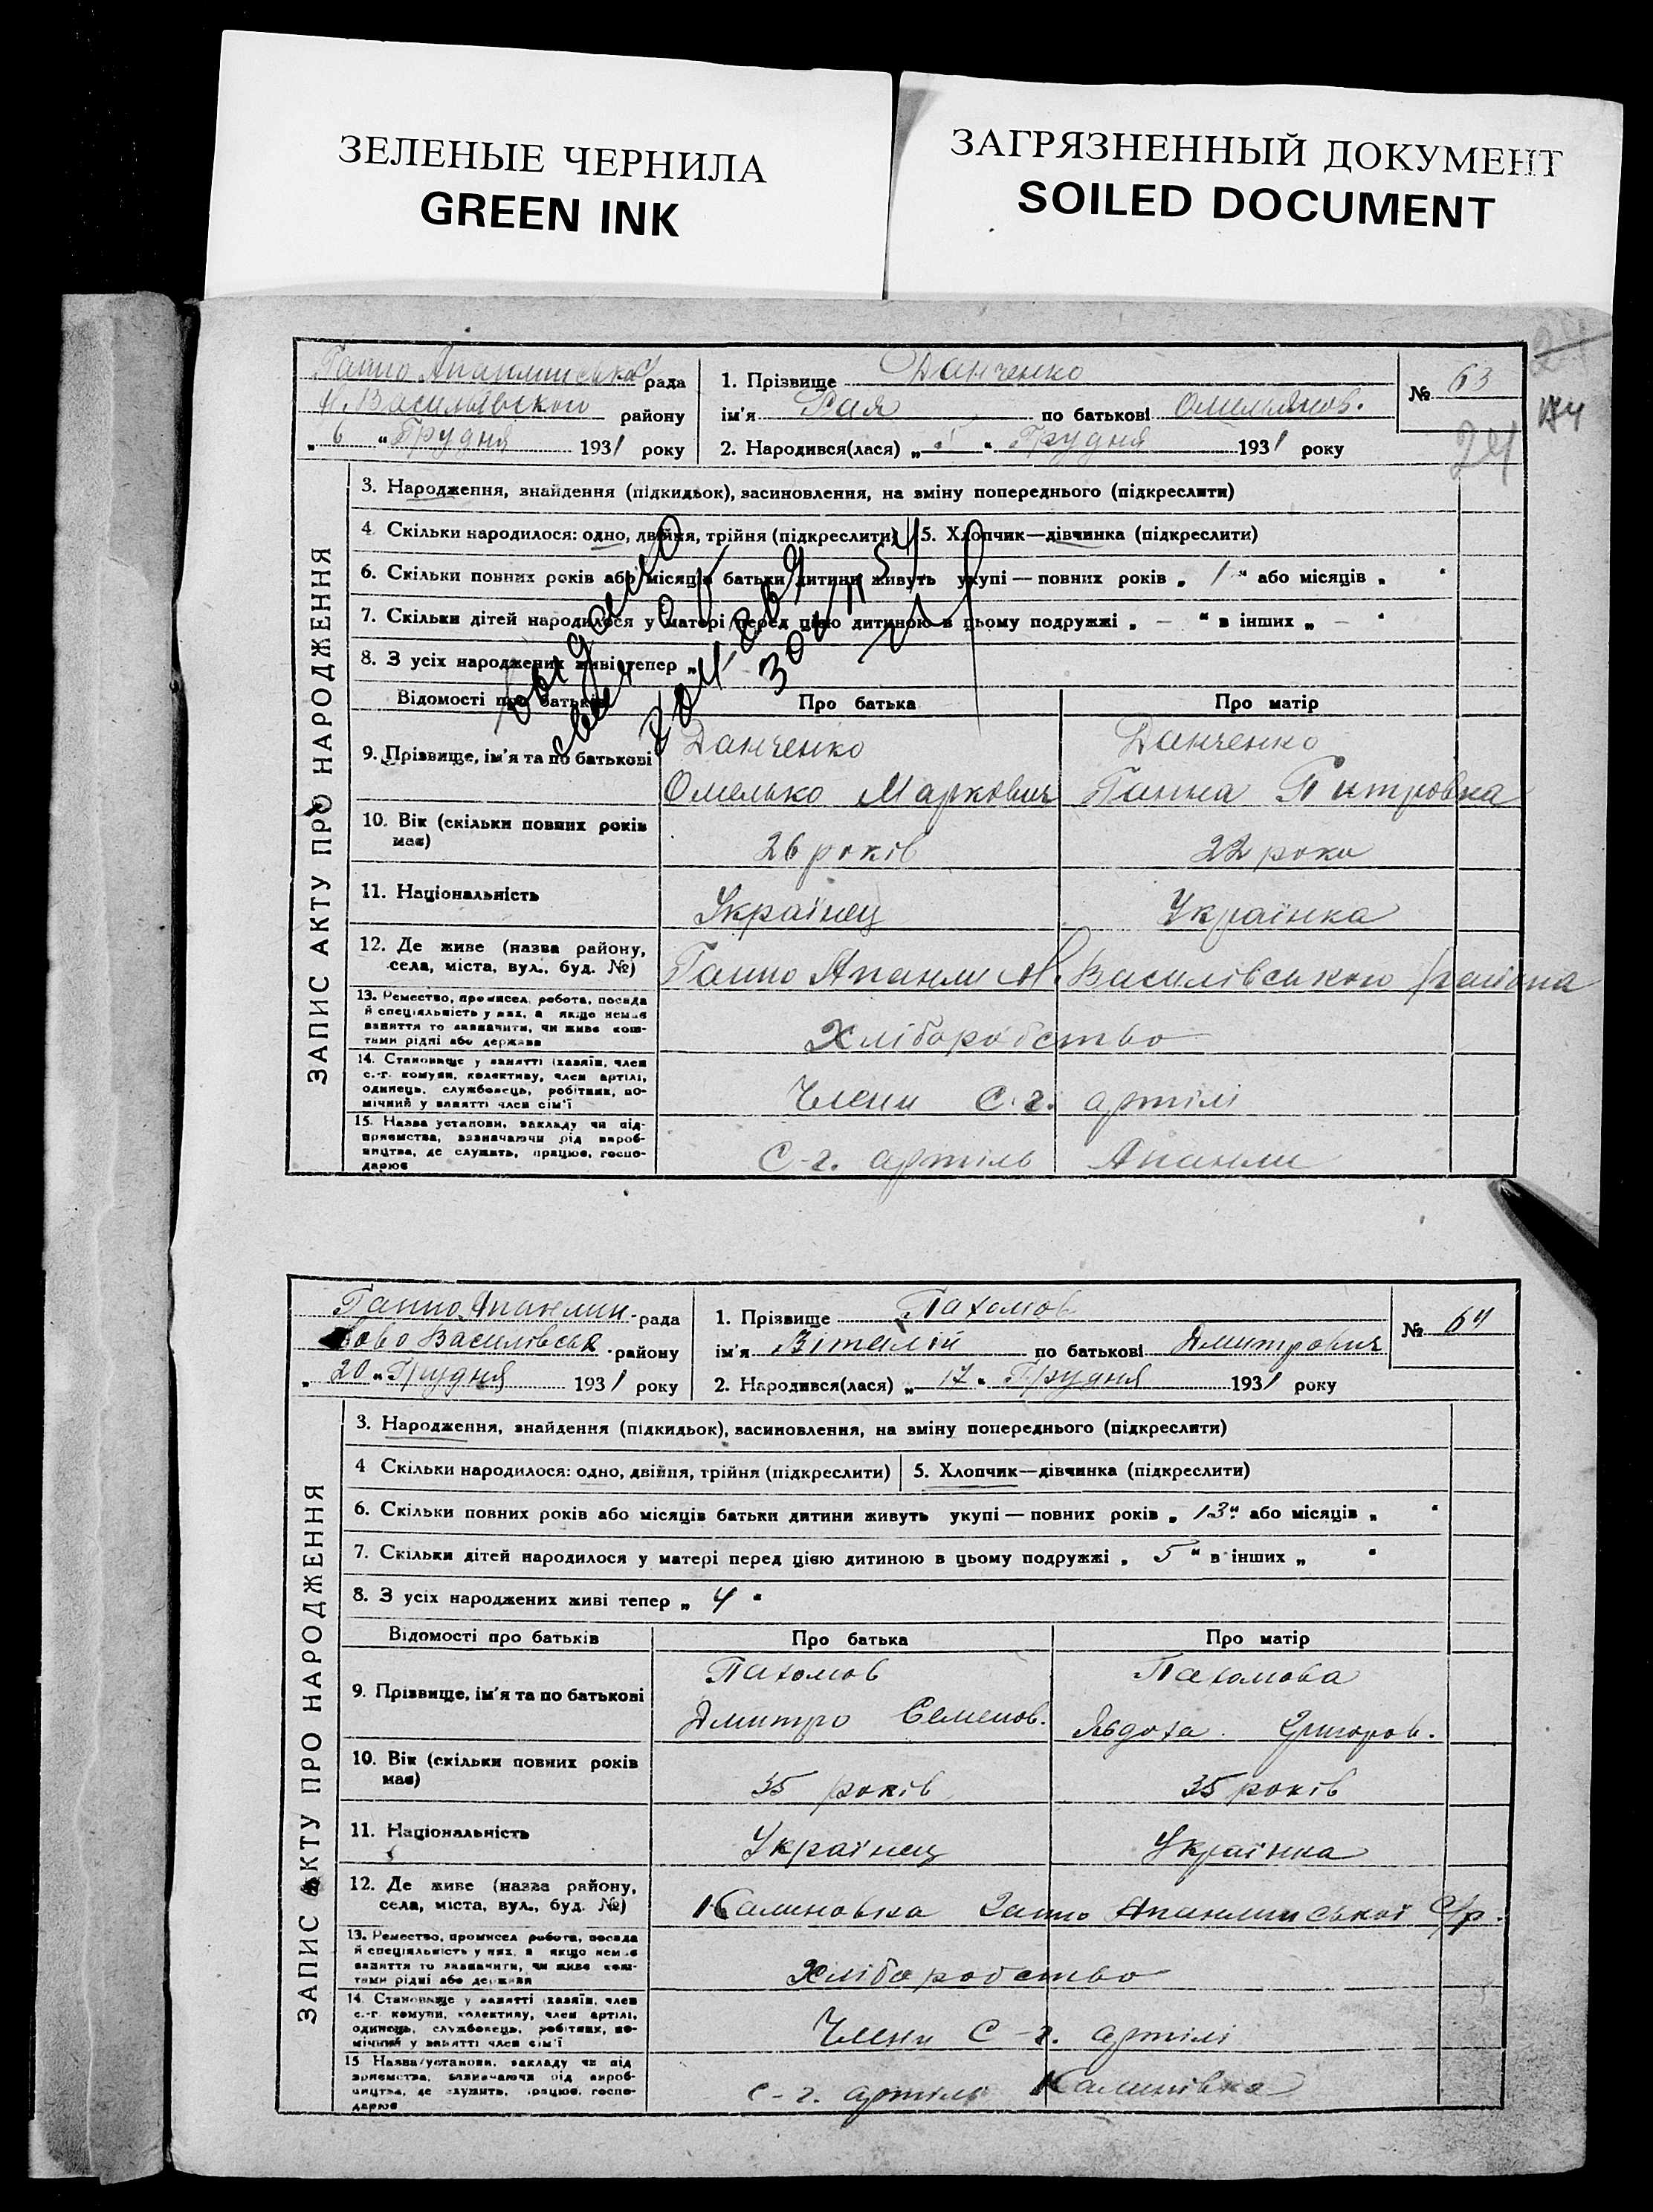 ЗЕЛЕНЫЕ ЧЕРНИЛА
GREEN INK
ЗАГРЯЗНЕННЫЙ ДОКУМЕНТ
SOILED DOCUMENT
рада
району
„ 6 “ Грудня 1931 року
1. Прізвище Данченко
ім'я Рая по батькові Омельянов.
2. Народився(лася) „ “ Грудня 1931 року
№ 63
24
ЗАПИС АКТУ ПРО НАРОДЖЕННЯ
3. Народження, знайдення (підкидьок), засиновлення, на зміну попереднього (підкреслити)
4 Скільки народилося: одно, двійня, трійня (підкреслити)
5. Хлопчик—дівчинка (підкреслити)
6. Скільки повних років або місяців батьки дитини живуть укупі — повних років „ 1 “ або місяців „ “
7. Скільки дітей народилося у матері перед цією дитиною в цьому подружжі „ – “ в інших „ – “
8. З усіх народжених живі тепер „
выдано
Відомості про батьків Про батька Про матір
9. Прізвище, ім'я та по батькові
Данченко Данченко
Омелько Маркович Ганна Питровна
10. Вік (скільки повних років має)
26 років 22 роки
11. Національність
Українец Українка
12. Де живе (назва району, села, міста, вул., буд. №)
Ганно Апанли Н. Василівського района
13. Ремество, промисел, робота, посада й спеціяльність у них, а якщо немає заняття то зазначити, чи живе коштами рідні або держави
Хліборобство
14. Становище у занятті (хазяїн, член с.-г. комуни, колективу, член артілі, одинець, службовець, робітник, помічний у занятті член сім'ї
Члени С. г. артілі
15. Назва установи, закладу чи підприємства, зазначаючи рід виробництва, де служить, працює, господарює
С-г. артіль Апанли
Ганно Апанлин. рада
Ново Василівськ. району
„ 20 “ Грудня 1931 року
1. Прізвище Пахомов
ім'я Віталій по батькові Дмитрович
2. Народився(лася) „ 17 “ Грудня 1931 року
№ 64
ЗАПИС АКТУ ПРО НАРОДЖЕННЯ
3. Народження, знайдення (підкидьок), засиновлення, на зміну попереднього (підкреслити)
4 Скільки народилося: одно, двійня, трійня (підкреслити)
5. Хлопчик—дівчинка (підкреслити)
6. Скільки повних років або місяців батьки дитини живуть укупі — повних років „ 13 “ або місяців „ “
7. Скільки дітей народилося у матері перед цією дитиною в цьому подружжі „ 5 “ в інших „ “
8. З усіх народжених живі тепер „ 4 “
Відомості про батьків Про батька Про матір
9. Прізвище, ім'я та по батькові
Пахомов Пахомова
Дмитро Семенов. Явдоха Григоров.
10. Вік (скільки повних років має)
35 років 35 років
11. Національність
Українец Українка
12. Де живе (назва району, села, міста, вул., буд. №)
Калиновка Ганно Апанлинської С/р.
13. Ремество, промисел робота, посада й спеціяльність у них, а якщо немає заняття то зазначити, чи живе коштами рідні або держави
Хліборобство
14. Становище у занятті (хазяїн, член с.-г. комуни, колективу, член артілі, одинець, службовець, робітник, помічний у занятті член сім'ї
Члени С-г. артілі
15 Назва установи, закладу чи підприємства, зазначаючи рід виробництва, де служить, працює, господарює
С-г. артіль Калинівка